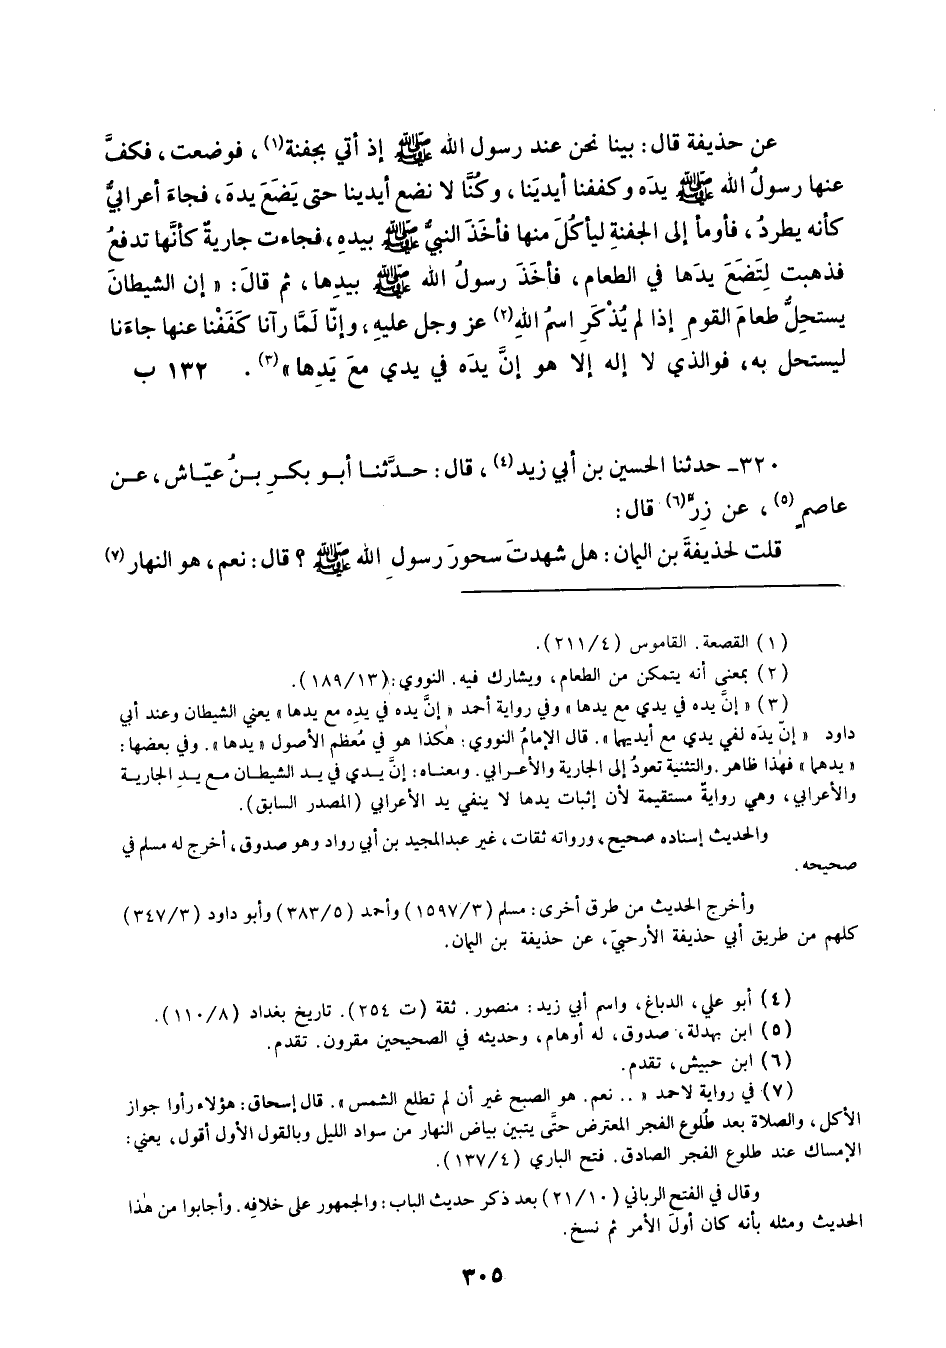 عن حذيفة قال: بينا نحن عند رسول الله ﷺ إذ أتي بجفنة(١)، فوضعت، فكفَّ
عنها رسولُ الله ﷺ يدَه وكففنا أيديَنا، وكُنَّا لا نضع أيدينا حتى يَضَعَ يدهَ، فجاءَ أعرابيٌّ
كأنه يطردُ، فأومأ إلى الجفنةِ ليأكُلَ منها فأخَذَ النبيُّ ﷺ بيدهِ، فجاءت جاريةٌ كأنَّها تدفعُ
فذهبت لِتَضَعَ يدَها في الطعام، فأخَذَ رسولُ الله ﷺ بيدِها، ثم قالَ: « إن الشيطانَ
يستحلُّ طعامَ القومِ إذا لم يُذْكَرِ اسمُ اللهِ(٢) عز وجل عليهِ، وإنّا لَمَّا رآنا كَفَفْنا عنها جاءَنا
ليستحل به، فوالذي لا إله إلا هو إنَّ يدَه في يدي معَ يَدِها»(٣). ١٣٢ ب
٣٢٠- حدثنا الحسين بن أبي زيد(٤)، قال: حدَّثنا أبو بكرِ بنُ عيّاش، عن
عاصمٍ(٥)، عن زِرٍّ(٦) قال:
قلت لحذيفةَ بن اليمان: هل شهدتَ سحورَ رسولِ الله ﷺ ؟ قال: نعم، هو النهار(٧)
(١) القصعة. القاموس (٢١١/٤).
(٢) بمعنى أنه يتمكن من الطعام، ويشارك فيه. النووي:(١٨٩/١٣).
(٣) « إنَّ يده في يدي مع يدها» وفي رواية أحمد « إنَّ يده في يدِه مع يدها» يعني الشيطان وعند أبي
داود « إنّ يدَه لفي يدي مع أيديهما». قال الإمامُ النووي: هٰكذا هو في مُعظم الأصول «يدها». وفي بعضها:
« يدهما» فهٰذا ظاهر. والتثنية تعودُ إلى الجارية والأعرابي. ومعناه: إنَّ يدي في يد الشيطان مع يدِ الجارية
والأعرابي، وهي روايةٌ مستقيمة لأن إثبات يدها لا ينفي يد الأعرابي (المصدر السابق).
والحديث إسناده صحيح، ورواته ثقات، غير عبدالمجيد بن أبي رواد وهو صدوق، أخرج له مسلم في
صحيحه.
وأخرج الحديث من طرق أخرى: مسلم (١٥٩٧/٣) وأحمد (٣٨٣/٥) وأبو داود (٣٤٧/٣)
كلهم من طريق أبي حذيفة الأرحبيّ، عن حذيفة بن اليمان.
(٤) أبو علي، الدباغ، واسم أبي زيد: منصور. ثقة (ت ٢٥٤). تاريخ بغداد (١١٠/٨).
(٥) ابن بهدلة، صدوق، له أوهام، وحديثه في الصحيحين مقرون. تقدم.
(٦) ابن حبيش، تقدم.
(٧) في رواية لاحمد « .. نعم. هو الصبح غير أن لم تطلع الشمس». قال إسحاق: هؤلاء رأوا جواز
الأكل، والصلاة بعد طُلوع الفجر المعترض حتَّى يتبين بياض النهار من سواد الليل وبالقول الأول أقول، يعني:
الإمساك عند طلوع الفجر الصادق. فتح الباري (١٣٧/٤).
وقال في الفتح الرباني (٢١/١٠) بعد ذكر حديث الباب: والجمهور على خلافِه. وأجابوا من هٰذا
الحديث ومثله بأنه كان أولَ الأمر ثم نسخ.
٣٠٥